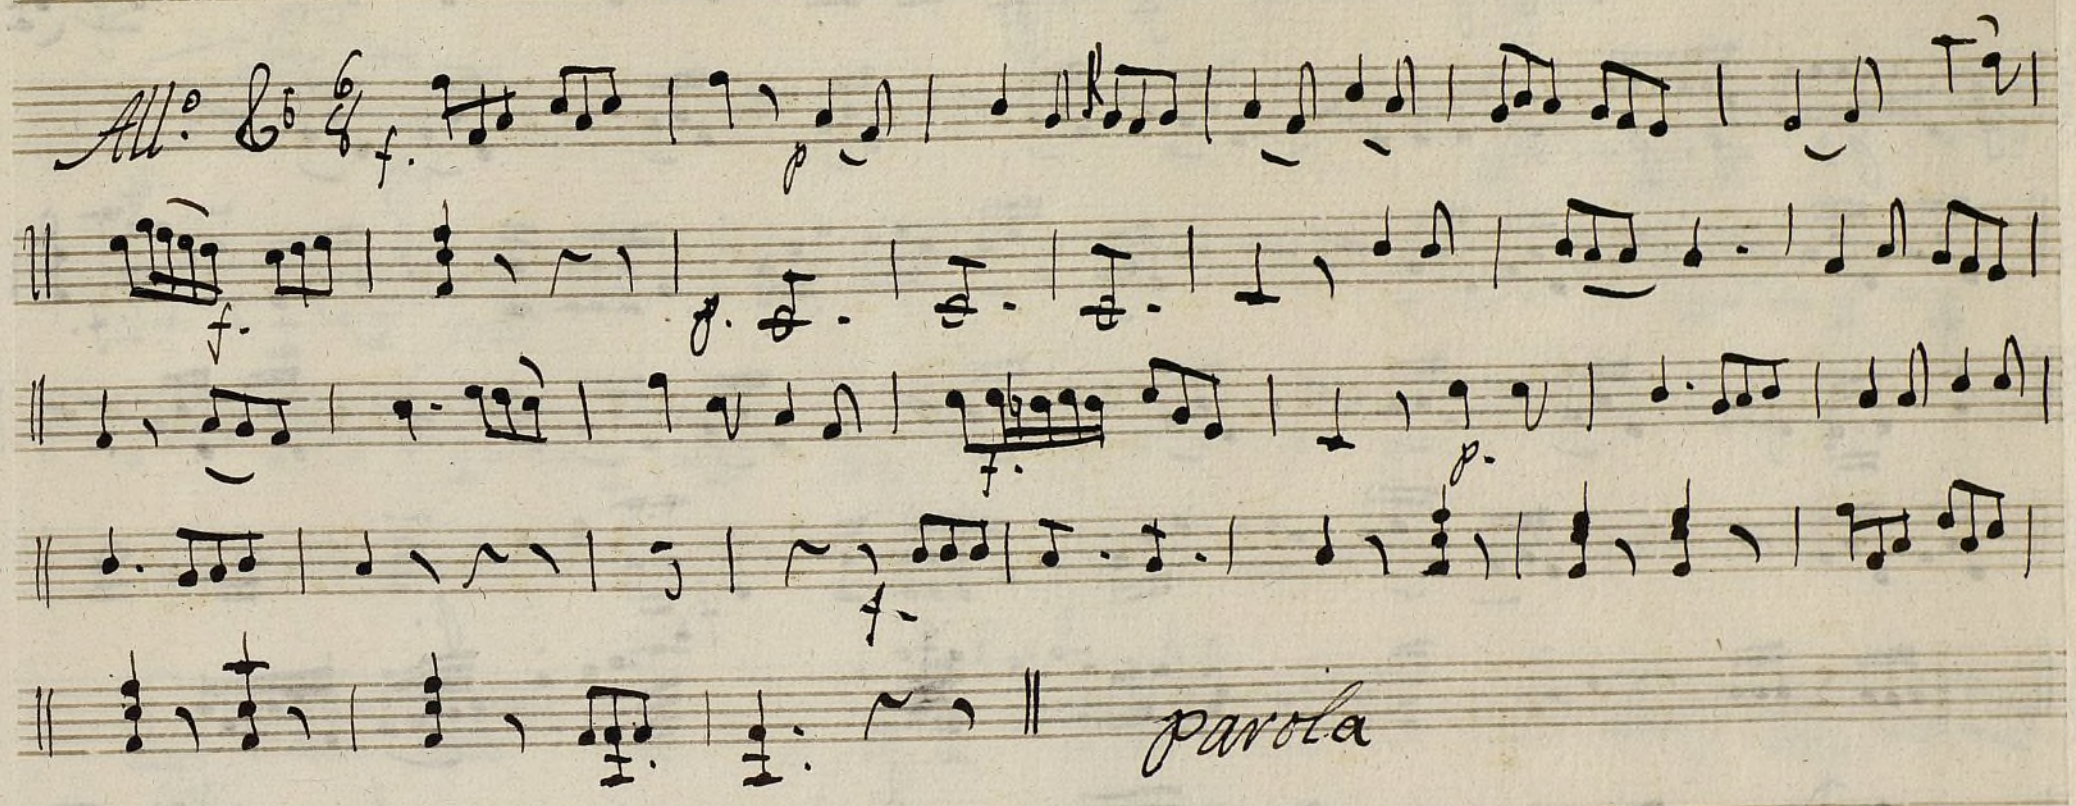 All.º 6 8 f. p
f. p.
f. p.
f.
parola